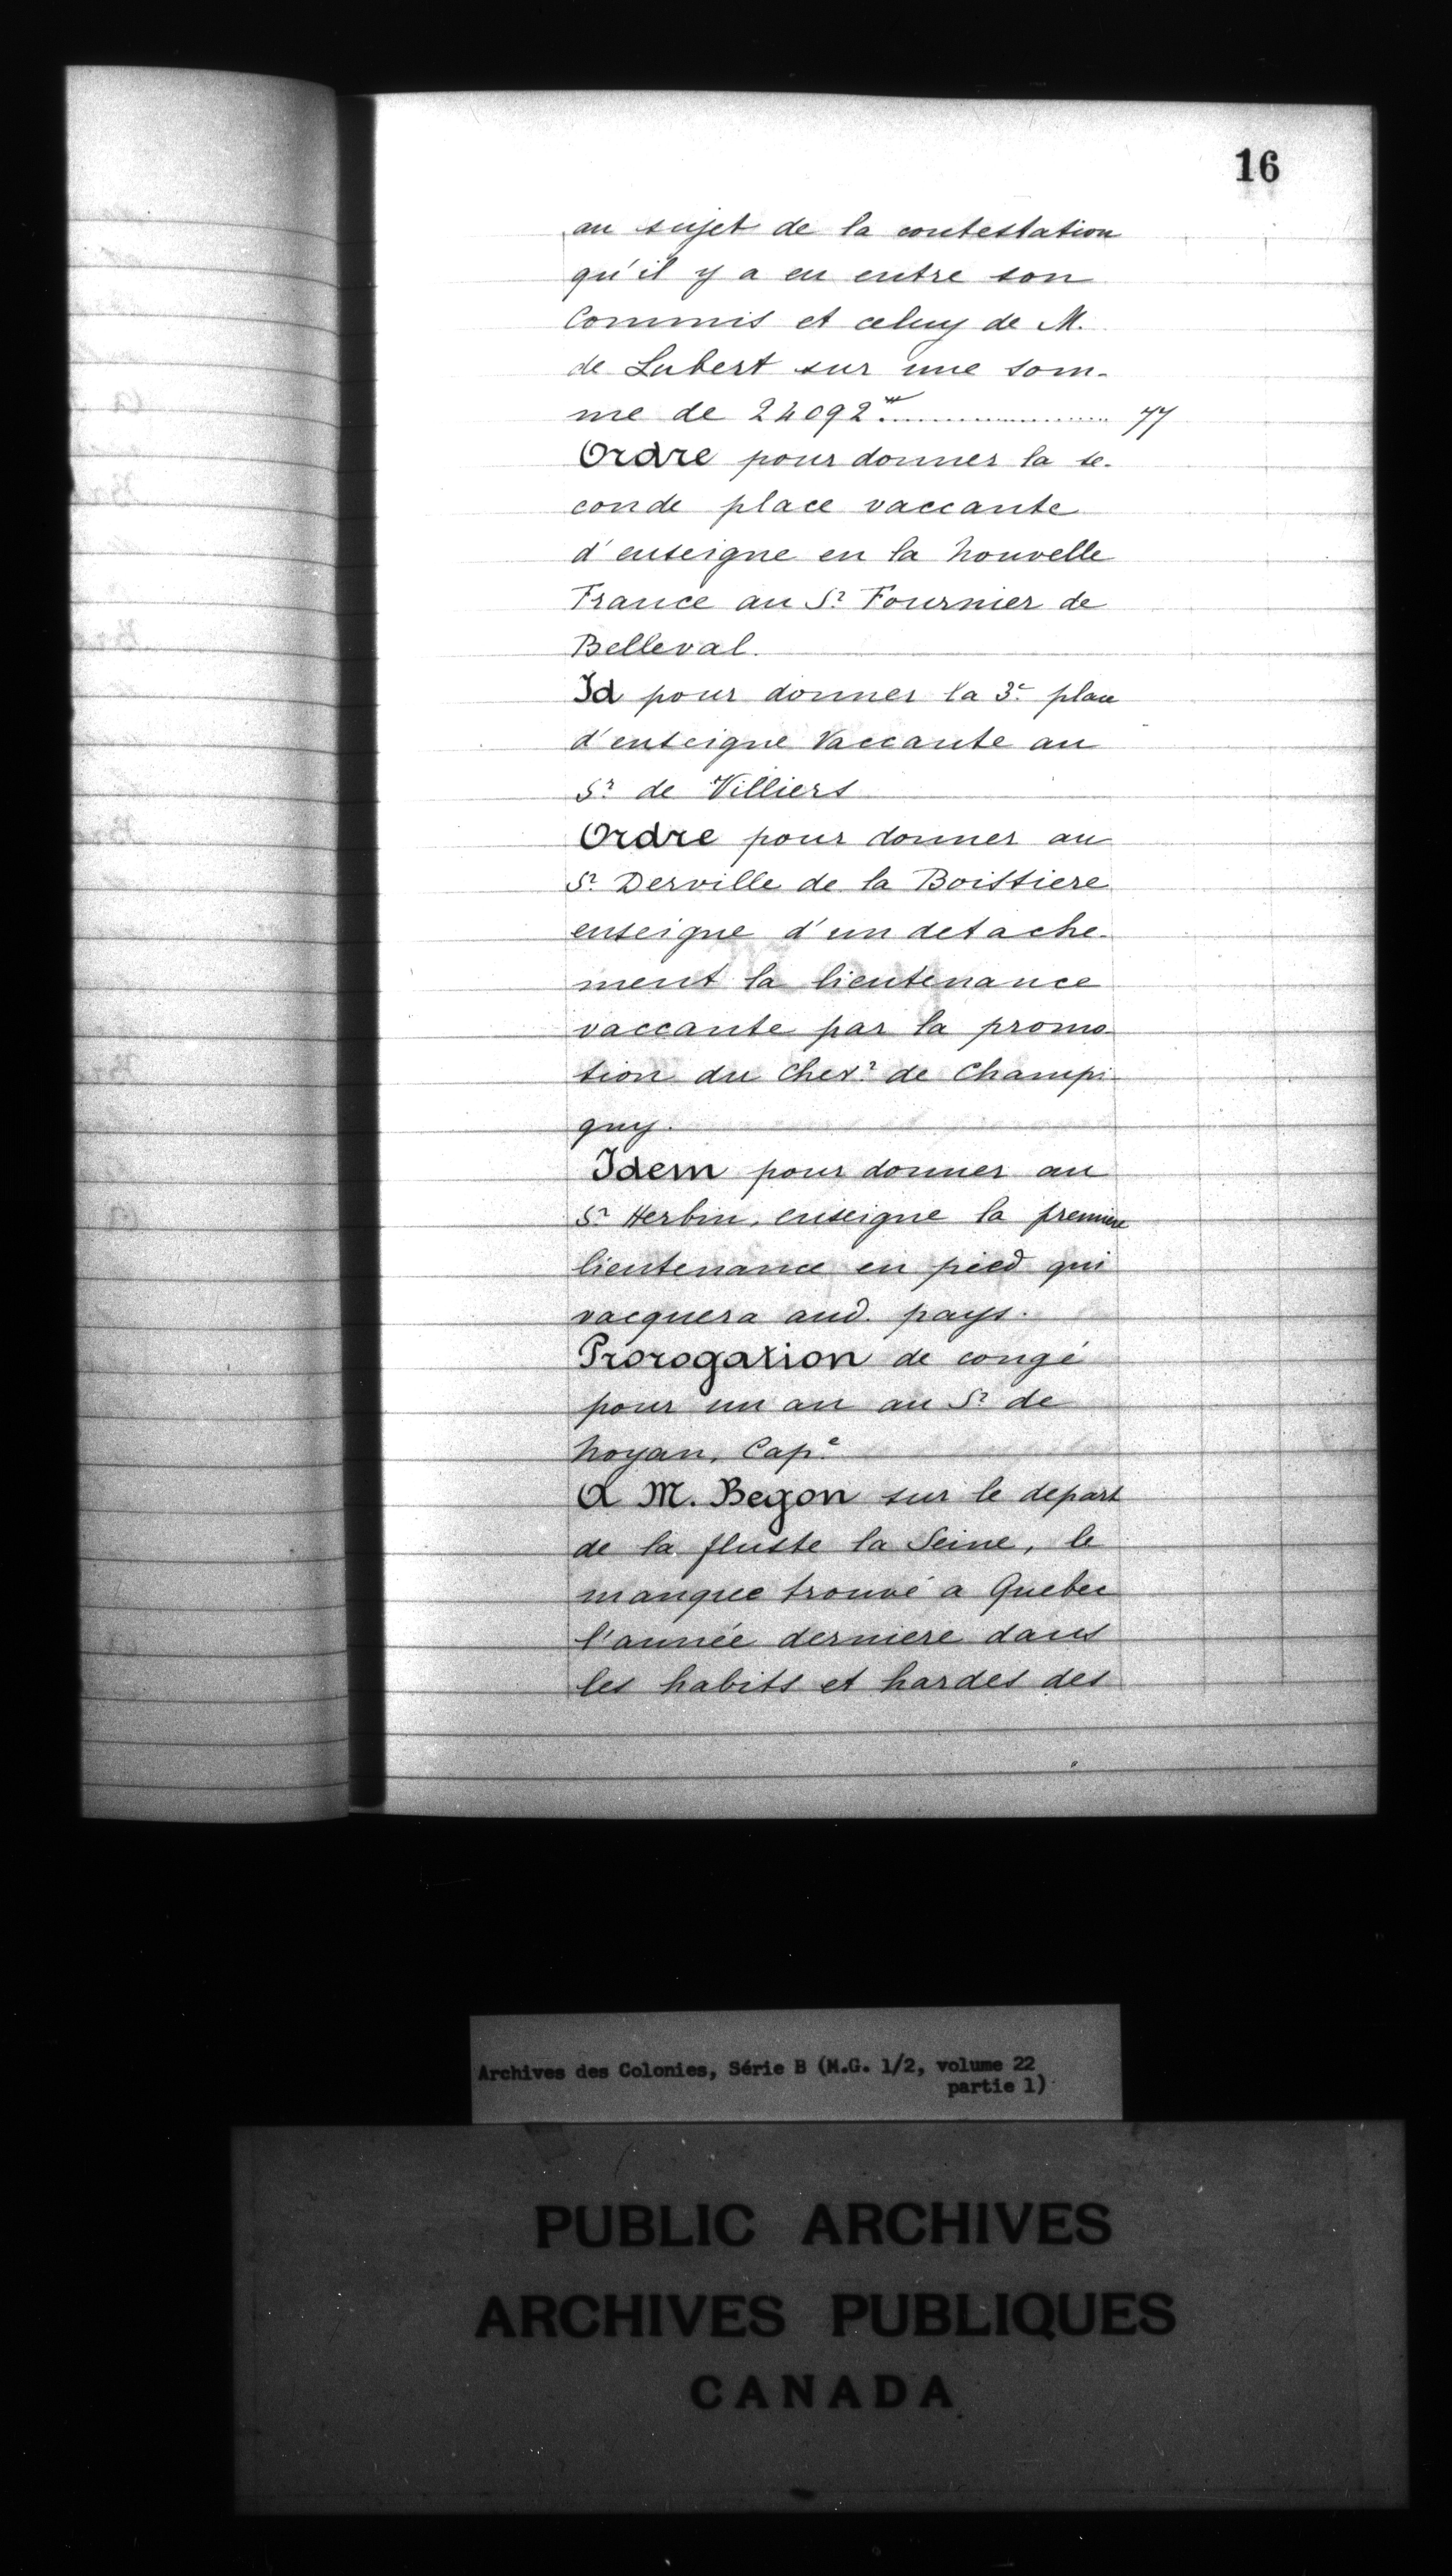 16
au sujet de la contestation
qu'il y a eu entre son
Commis et celuy de M.
de Lubert sur une som-
me de 24092tt.......................... 77
Ordre pour donner la se-
conde place vaccante
d'enseigne en la Nouvelle
France au Sr Fournier de
Belleval.
Id pour donner la 3e place
d'enseigne Vaccante au
Sr de Villiers
Ordre pour donner au
Sr Derville de la Boissiere
enseigne d'un detache-
ment la lieutenance
vaccante par la promo-
tion du Chevr de Champi-
gny.
Idem pour donner au
Sr Herbin, enseigne la premiere
lieutenance en pied qui
vacquera aud. pays.
Prorogation de congé
pour un an au Sr de
Noyan, Cape
A M. Begon sur le depart
de la fluste la Seine, le
manque trouvé a Quebec
l'année derniere dans
les habits et hardes des
Archives des Colonies, Série B (M.G. 1/2, volume 22
partie 1)
PUBLIC ARCHIVES
ARCHIVES PUBLIQUES
CANADA